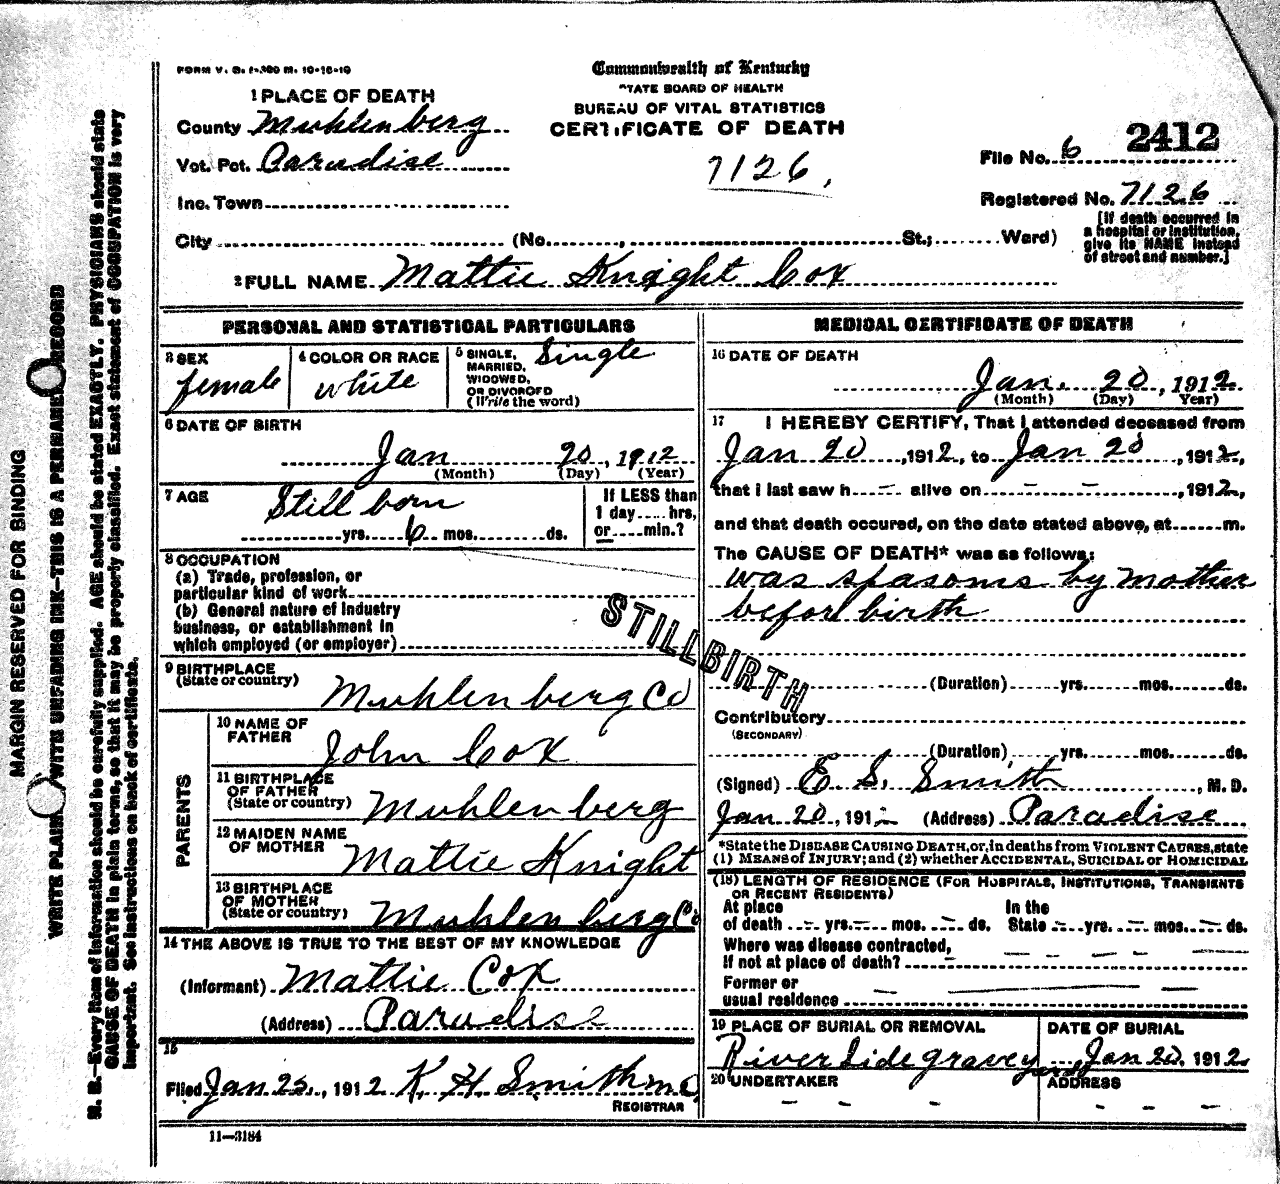 FORM V. S. 1-300 M. 10-18-10
Commonwealth of Kentucky
STATE BOARD OF HEALTH
BUREAU OF VITAL STATISTICS
CERTIFICATE OF DEATH
7126,
1 PLACE OF DEATH
County Muhlenberg
Vot. Pct. Paradise
Inc. Town
City (No. , St.; Ward)
File No. 6 2412
Registered No. 7126
[If death occurred in a hospital or institution, give its NAME instead of street and number.]
2 FULL NAME Mattie Knight Cox
PERSONAL AND STATISTICAL PARTICULARS
3 SEX female
4 COLOR OR RACE white
5 SINGLE, MARRIED, WIDOWED, OR DIVORCED (Write the word) Single
6 DATE OF BIRTH
Jan 20, 1912
(Month) (Day) (Year)
7 AGE Still born
yrs. 6 mos. ds.
If LESS than 1 day hrs, or min.?
8 OCCUPATION
(a) Trade, profession, or
particular kind of work
(b) General nature of industry
business, or establishment in
which employed (or employer)
9 BIRTHPLACE
(State or country) Muhlenberg Co
PARENTS
10 NAME OF FATHER John Cox
11 BIRTHPLACE OF FATHER (State or country) Muhlenberg
12 MAIDEN NAME OF MOTHER Mattie Knight
13 BIRTHPLACE OF MOTHER (State or country) Muhlenberg Co
14 THE ABOVE IS TRUE TO THE BEST OF MY KNOWLEDGE
(Informant) Mattie Cox
(Address) Paradise
15
Filed Jan 25, 1912 K. H. Smith
REGISTRAR
11—3184
STILLBIRTH
MEDICAL CERTIFICATE OF DEATH
16 DATE OF DEATH
Jan. 20, 1912
(Month) (Day) Year)
17 I HEREBY CERTIFY, That I attended deceased from
Jan 20, 1912, to Jan 20, 1912,
that I last saw h – alive on – – –, 1912,
and that death occured, on the date stated above, at m.
The CAUSE OF DEATH* was as follows:
was spasoms by mother
before birth
(Duration) yrs. mos. ds.
Contributory
(SECONDARY)
(Duration) yrs. mos. ds.
(Signed) E. S. Smith, M. D.
Jan 20, 1912 (Address) Paradise
*State the DISEASE CAUSING DEATH, or, in deaths from VIOLENT CAUSES, state
(1) MEANS of INJURY; and (2) whether ACCIDENTAL, SUICIDAL or HOMICIDAL
(18) LENGTH OF RESIDENCE (FOR HOSPITALS, INSTITUTIONS, TRANSIENTS
OR RECENT RESIDENTS)
At place of death – yrs. – mos. – ds. In the State – yrs. – mos. – ds.
Where was disease contracted,
If not at place of death?
Former or
usual residence
19 PLACE OF BURIAL OR REMOVAL
River Side graveyard
DATE OF BURIAL
Jan 20, 1912
20 UNDERTAKER – – –
ADDRESS – – –
MARGIN RESERVED FOR BINDING
WRITE PLAINLY WITH UNFADING INK—THIS IS A PERMANENT RECORD
N. B.—Every item of information should be carefully supplied. AGE should be stated EXACTLY. PHYSICIANS should state
CAUSE OF DEATH in plain terms, so that it may be properly classified. Exact statement of OCCUPATION is very
important. See instructions on back of certificate.